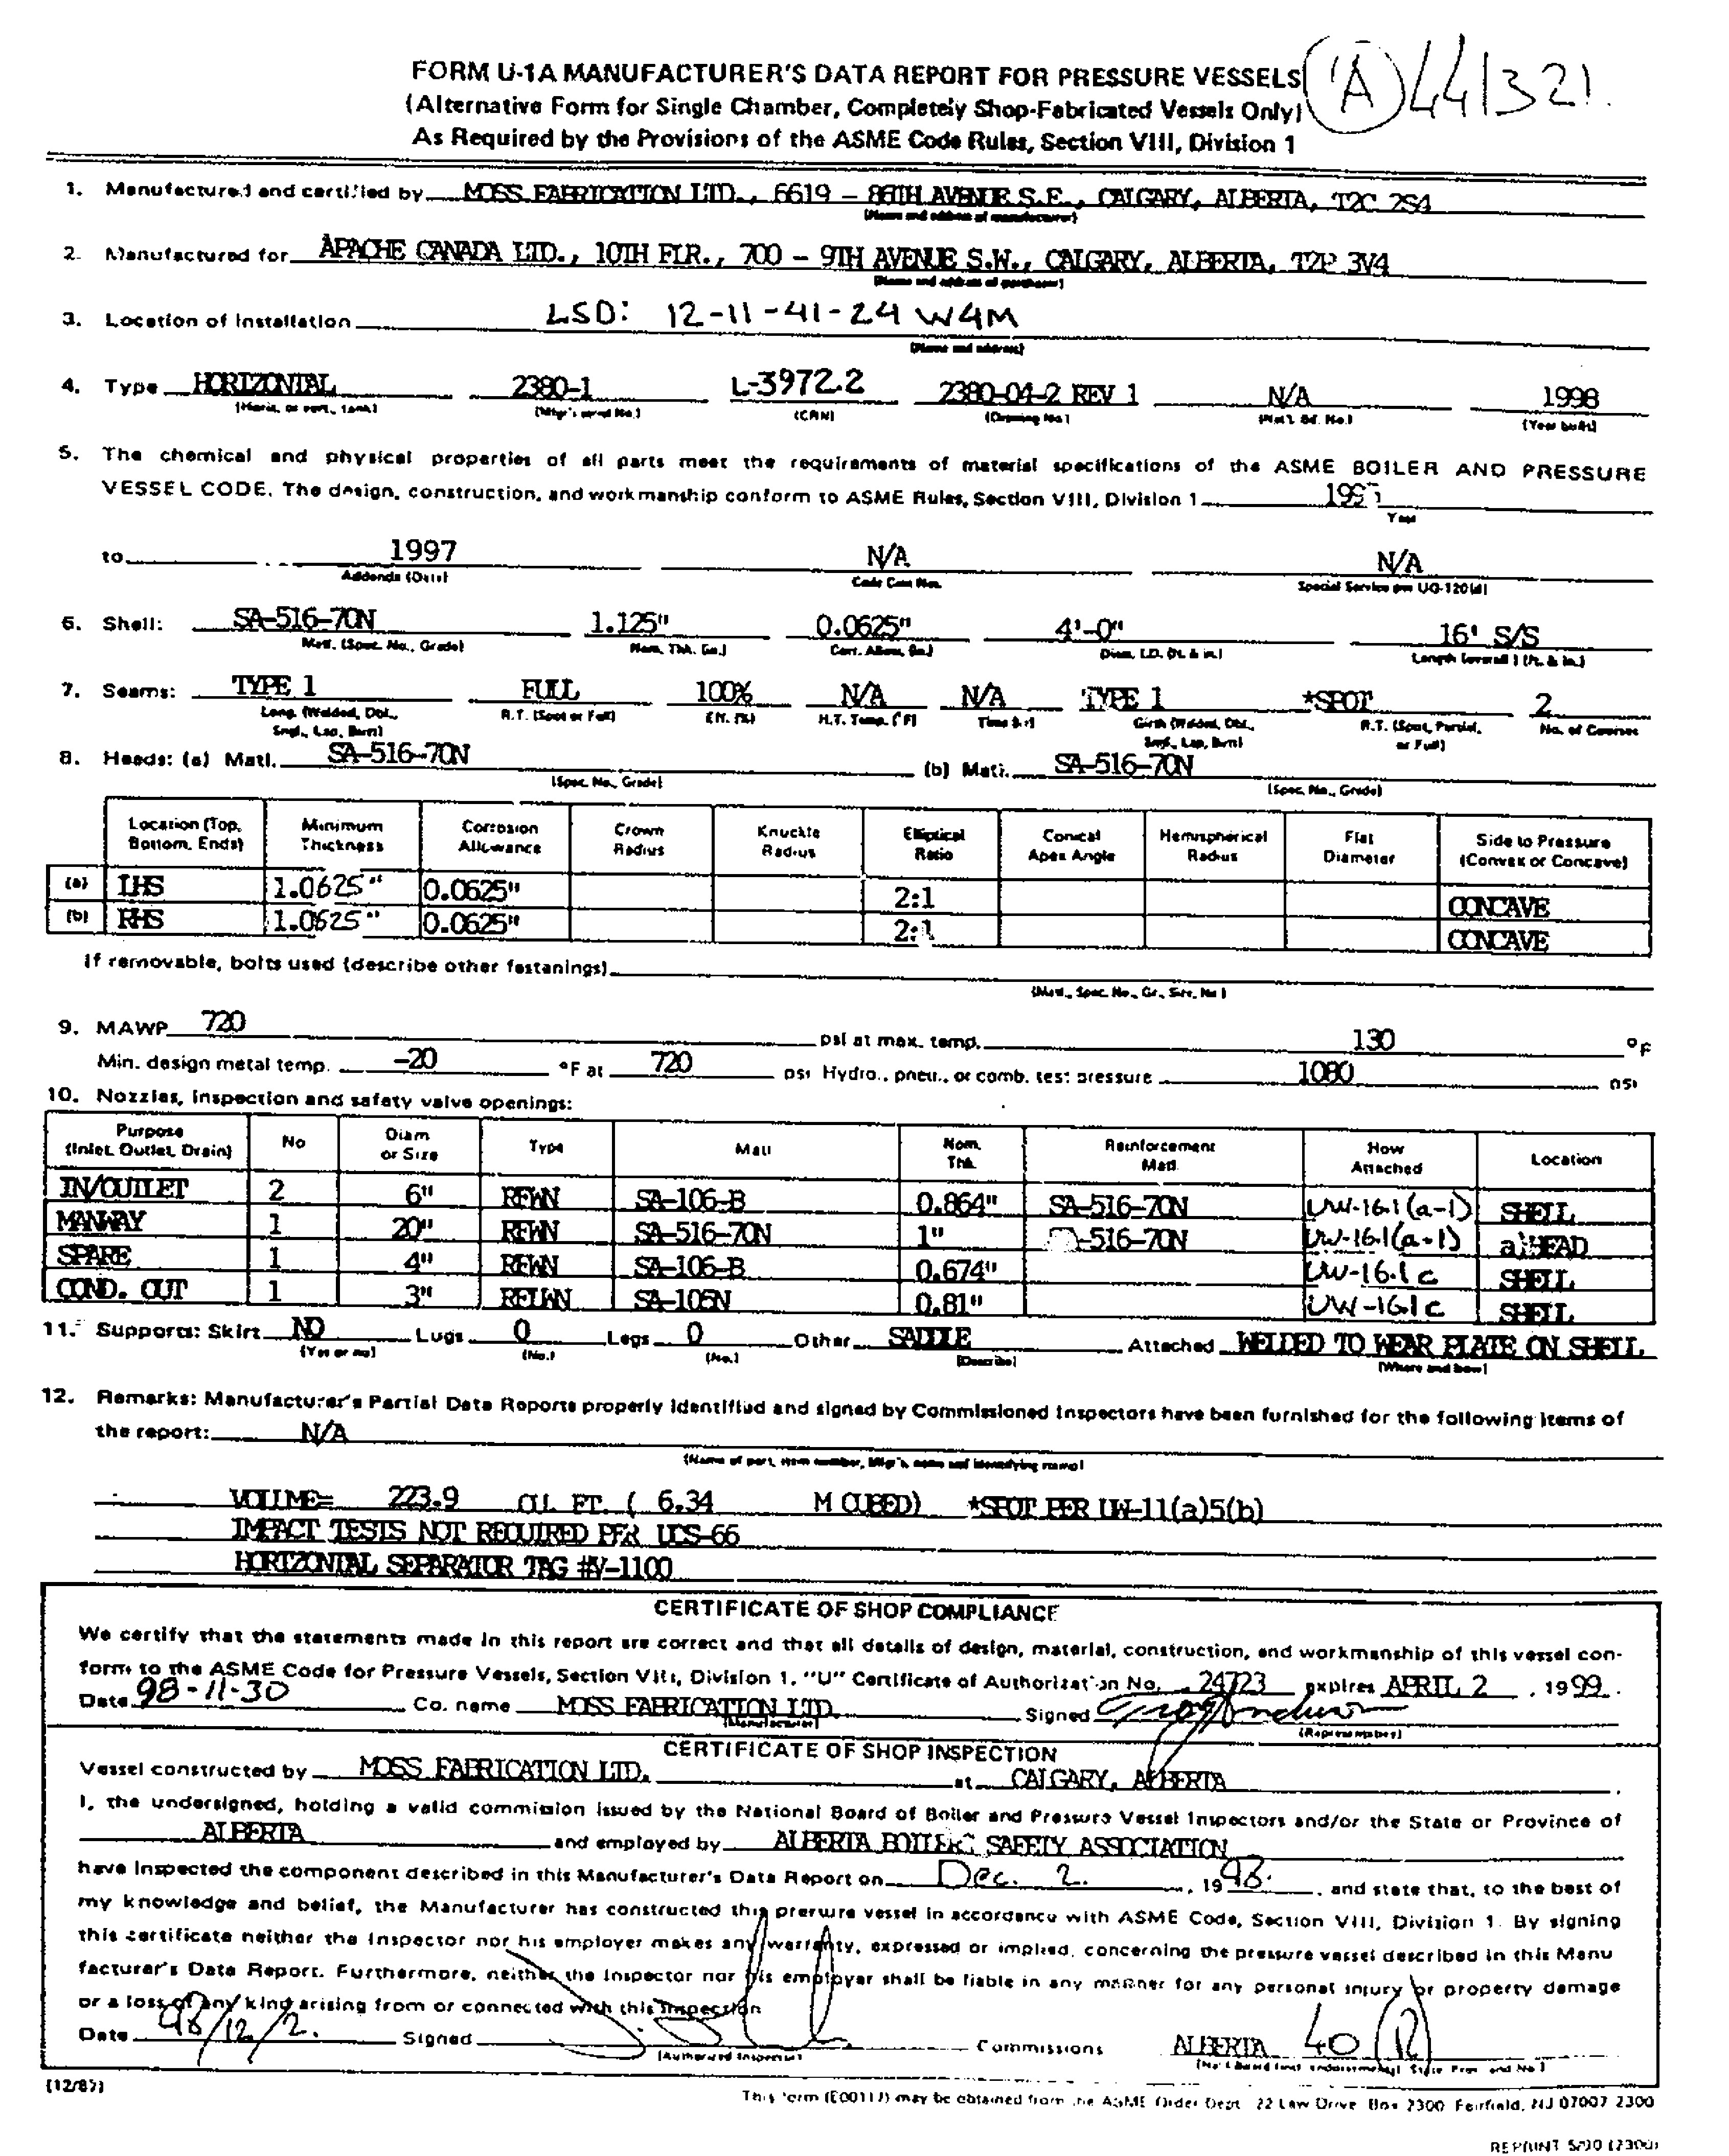 FORM U-1A MANUFACTURER'S DATA REPORT FOR PRESSURE VESSELS (A) 441321
(Alternative Form for Single Chamber, Completely Shop-Fabricated Vessels Only)
As Required by the Provisions of the ASME Code Rules, Section VIII, Division 1
1. Manufactured and certified by MOSS FABRICATION LTD., 6619 - 86TH AVENUE S.E., CALGARY, ALBERTA, T2C 2S4
(Name and address of manufacturer)
2. Manufactured for APACHE CANADA LTD., 10TH FLR., 700 - 9TH AVENUE S.W., CALGARY, ALBERTA, T2P 3V4
(Name and address of purchaser)
3. Location of Installation LSD: 12-11-41-24 W4M
(Name and address)
4. Type HORIZONTAL 2380-1 L-3972.2 2380-04-2 REV 1 N/A 1998
(Horiz. or vert., tank) (Mfg's serial No.) (CRN) (Drawing No.) (Nat'l. Bd. No.) (Year built)
5. The chemical and physical properties of all parts meet the requirements of material specifications of the ASME BOILER AND PRESSURE
VESSEL CODE. The design, construction, and workmanship conform to ASME Rules, Section VIII, Division 1 199
Year
to 1997 N/A N/A
Addenda (Date) Code Case Nos. Special Service per UG-120(d)
6. Shell: SA-516-70N 1.125" 0.0625" 4'-0" 16' S/S
Matl. (Spec. No., Grade) Nom. Thk. (in.) Corr. Allow. (in.) Diam. I.D. (ft. & in.) Length (overall) (ft. & in.)
7. Seams: TYPE 1 FULL 100% N/A N/A TYPE 1 *SPOT 2
Long. (Welded, Dbl., Sngl., Lap, Butt) R.T. (Spot or Full) Eff. (%) H.T. Temp. (°F) Time (hr) Girth (Welded, Dbl., Sngl., Lap, Butt) R.T. (Spot, Partial, or Full) No. of Courses
8. Heads: (a) Matl. SA-516-70N (b) Matl. SA-516-70N
(Spec. No., Grade) (Spec. No., Grade)
Location (Top, Bottom, Ends) Minimum Thickness Corrosion Allowance Crown Radius Knuckle Radius Elliptical Ratio Conical Apex Angle Hemispherical Radius Flat Diameter Side to Pressure (Convex or Concave)
(a) LHS 1.0625" 0.0625" 2:1 CONCAVE
(b) RHS 1.0625" 0.0625" 2:1 CONCAVE
If removable, bolts used (describe other fastenings)
(Matl., Spec. No., Gr., Size, No.)
9. MAWP 720 psi at max. temp. 130 °F
Min. design metal temp. -20 °F at 720 psi Hydro., pneu., or comb. test pressure 1080 psi
10. Nozzles, inspection and safety valve openings:
Purpose (Inlet, Outlet, Drain) No Diam or Size Type Matl Nom. Thk. Reinforcement Matl. How Attached Location
IN/OUTLET 2 6" RFWN SA-106-B 0.864" SA-516-70N UW-16.1(a-1) SHELL
MANWAY 1 20" RFWN SA-516-70N 1" -516-70N UW-16.1(a-1) a)HEAD
SPARE 1 4" RFWN SA-106-B 0.674" UW-16.1c SHELL
COND. OUT 1 3" RFLWN SA-105N 0.81" UW-16.1c SHELL
11. Supports: Skirt NO Lugs 0 Legs 0 Other SADDLE Attached WELDED TO WEAR PLATE ON SHELL
(Yes or no) (No.) (No.) (Describe) (Where and how)
12. Remarks: Manufacturer's Partial Data Reports properly identified and signed by Commissioned Inspectors have been furnished for the following items of
the report: N/A
(Name of part, item number, Mfg's. name and identifying stamp)
VOLUME= 223.9 CU. FT. ( 6.34 M CUBED) *SPOT PER UW-11(a)5(b)
IMPACT TESTS NOT REQUIRED PER UCS-66
HORIZONTAL SEPARATOR TAG #V-1100
CERTIFICATE OF SHOP COMPLIANCE
We certify that the statements made in this report are correct and that all details of design, material, construction, and workmanship of this vessel con-
form to the ASME Code for Pressure Vessels, Section VIII, Division 1. "U" Certificate of Authorization No. 24723 expires APRIL 2, 1999.
Date 98-11-30 Co. name MOSS FABRICATION LTD. Signed
(Manufacturer) (Representative)
CERTIFICATE OF SHOP INSPECTION
Vessel constructed by MOSS FABRICATION LTD. at CALGARY, ALBERTA
I, the undersigned, holding a valid commission issued by the National Board of Boiler and Pressure Vessel Inspectors and/or the State or Province of
ALBERTA and employed by ALBERTA BOILERS SAFETY ASSOCIATION
have inspected the component described in this Manufacturer's Data Report on Dec. 2. , 1998. , and state that, to the best of
my knowledge and belief, the Manufacturer has constructed this pressure vessel in accordance with ASME Code, Section VIII, Division 1. By signing
this certificate neither the Inspector nor his employer makes any warranty, expressed or implied, concerning the pressure vessel described in this Manu
facturer's Data Report. Furthermore, neither the Inspector nor his employer shall be liable in any manner for any personal injury or property damage
or a loss of any kind arising from or connected with this inspection
Date 98/12/2. Signed Commissions ALBERTA 40 (R)
(Authorized Inspector) (Nat'l Board (incl. endorsements), State Prov. and No.)
(12/87)
This form (E00117) may be obtained from the ASME Order Dept. 22 Law Drive Box 2300 Fairfield, NJ 07007 2300
REPRINT 5/90 (2300)